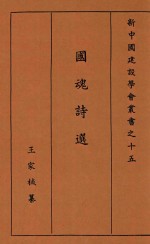 新中國建設學會叢書之十五
國魂詩選
王家棫纂